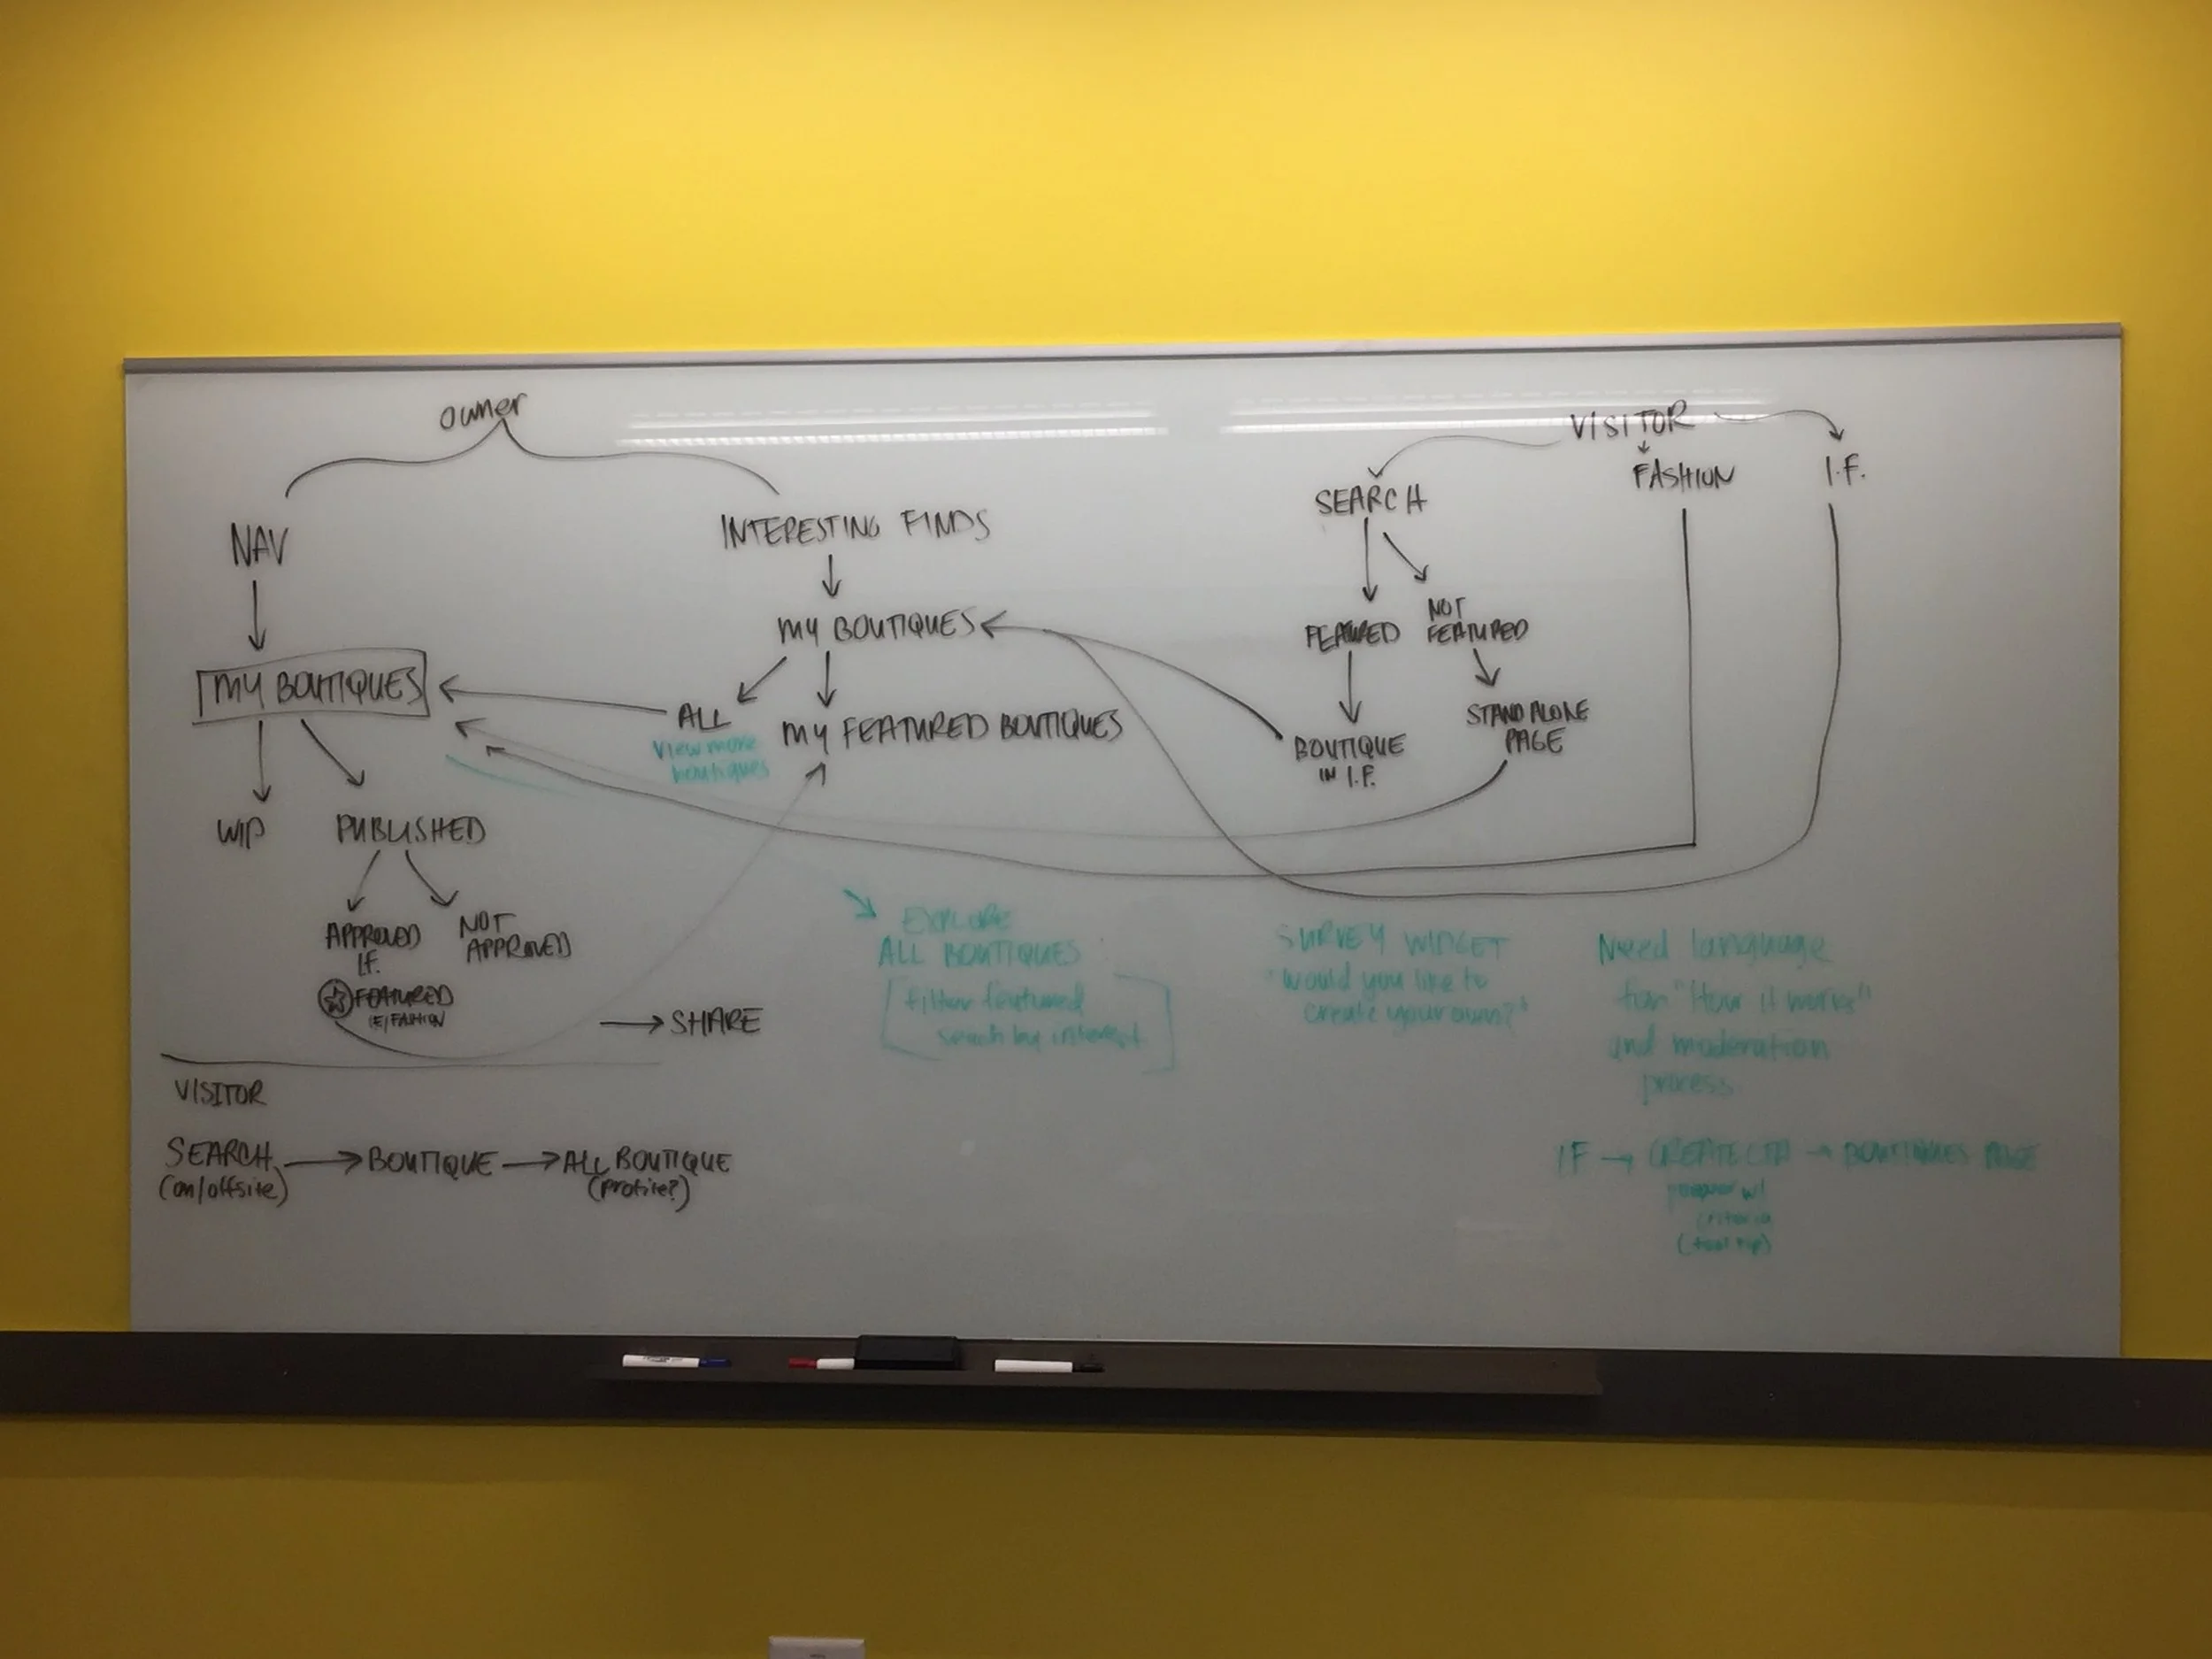 owner
NAV
INTERESTING FINDS
MY BOUTIQUES
MY BOUTIQUES
ALL
View more
boutiques
MY FEATURED BOUTIQUES
WIP
PUBLISHED
APPROVED
I.F.
FEATURED
IF/FASHION
NOT
APPROVED
SHARE
VISITOR
SEARCH
(on/offsite)
BOUTIQUE
ALL BOUTIQUE
(profile?)
VISITOR
SEARCH
FASHION
I.F.
FEATURED
NOT
FEATURED
BOUTIQUE
IN I.F.
STAND ALONE
PAGE
EXPLORE
ALL BOUTIQUES
filter featured
search by interest
SURVEY WIDGET
"would you like to
create your own?"
Need language
for "How it works"
and moderation
process
IF → CREATE CTA → BOUTIQUES PAGE
w/
criteria
(tool tip)